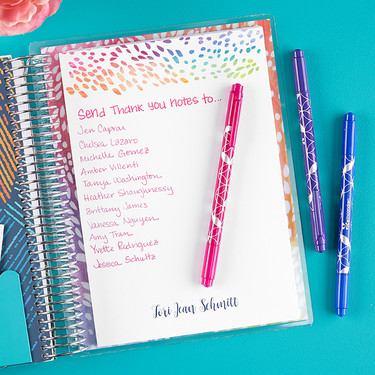 Send Thank you notes to...
Jen Caprar
Chelsea Lazaro
Michelle Gomez
Amber Villenti
Tanya Washington
Heather Shawnnessy
Brittany James
Vanessa Nguyen
Amy Tran
Yvette Rodriguez
Jessica Schultz
Tori Jean Schmitt